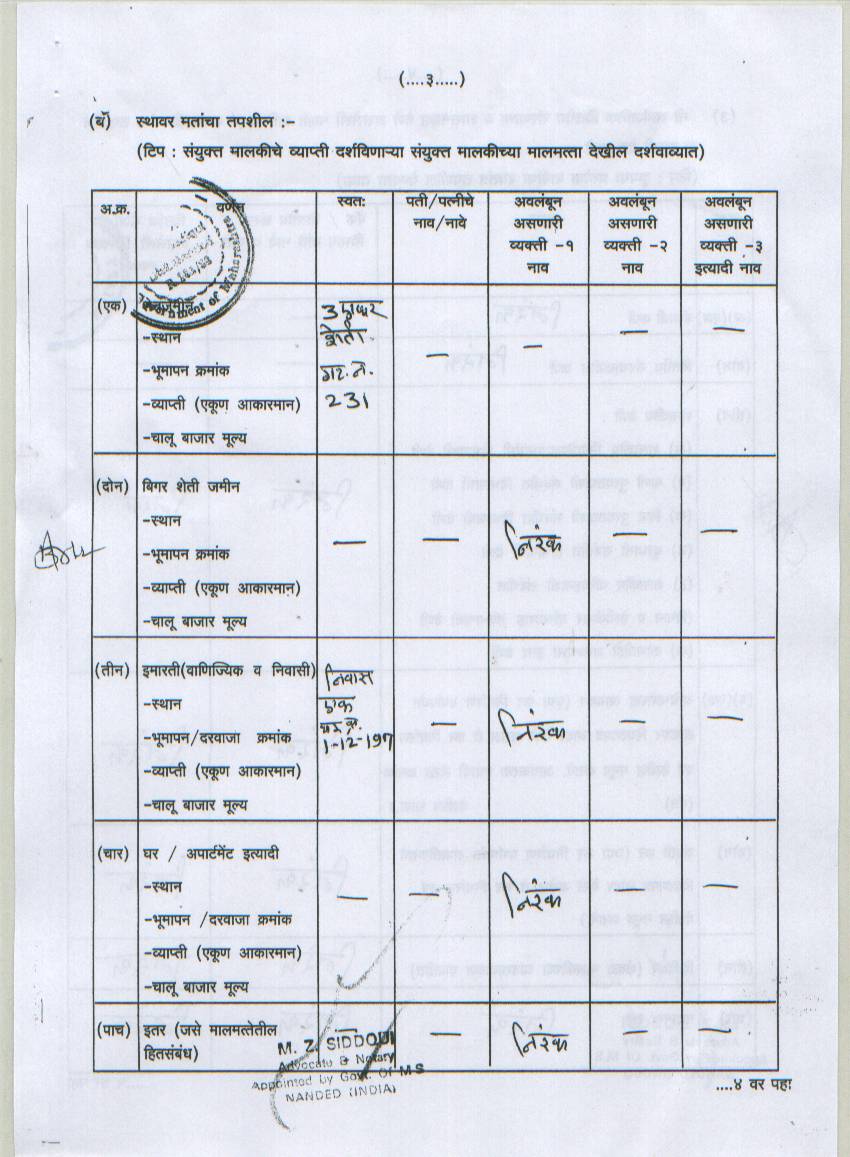 (....३.....)
(बॅ) स्थावर मतांचा तपशील :-
(टिप : संयुक्त मालकीचे व्याप्ती दर्शविणाऱ्या संयुक्त मालकीच्या मालमत्ता देखील दर्शवाव्यात)
अ.क्र. वर्णन स्वतः पती/पत्नीचे नाव/नावे अवलंबून असणारी व्यक्ती -१ नाव अवलंबून असणारी व्यक्ती -२ नाव अवलंबून असणारी व्यक्ती -३ इत्यादी नाव
R.
ernment of Maharas
(एक) 3 एकर
-स्थान
-भूमापन क्रमांक गट. नं.
-व्याप्ती (एकूण आकारमान) 231
-चालू बाजार मूल्य
(दोन) बिगर शेती जमीन
-स्थान
-भूमापन क्रमांक — — निरंक — —
-व्याप्ती (एकूण आकारमान)
-चालू बाजार मूल्य
(तीन) इमारती(वाणिज्यिक व निवासी) निवास
-स्थान
-भूमापन/दरवाजा क्रमांक 1-12-197 — निरंक — —
-व्याप्ती (एकूण आकारमान)
-चालू बाजार मूल्य
(चार) घर / अपार्टमेंट इत्यादी
-स्थान — — निरंक — —
-भूमापन /दरवाजा क्रमांक
-व्याप्ती (एकूण आकारमान)
-चालू बाजार मूल्य
(पाच) इतर (जसे मालमत्तेतील — निरंक — —
हितसंबंध)
M. Z. SIDDQUI
Advocate & Notary
Appointed by Govt. Of M S
NANDED (INDIA)
....४ वर पहा